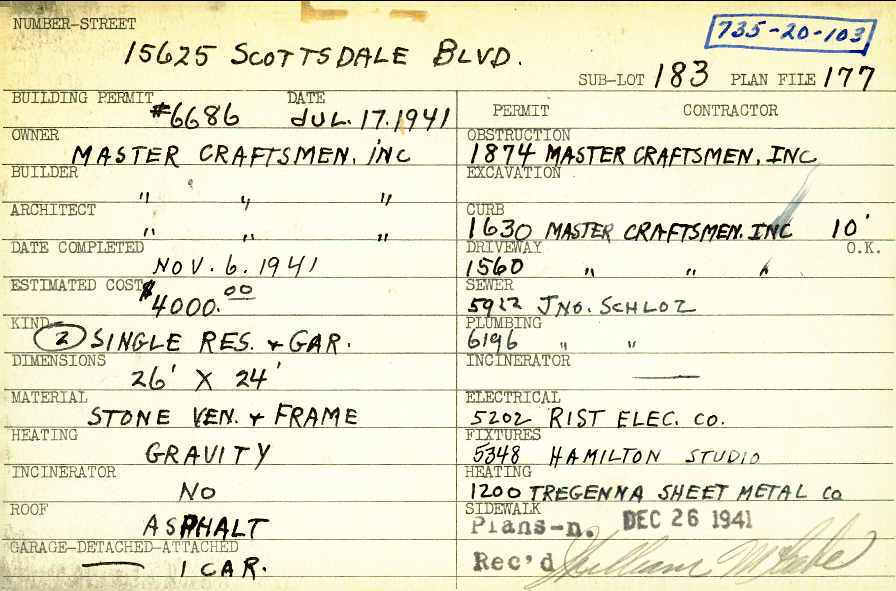 NUMBER-STREET
15625 SCOTTSDALE BLVD.
735-20-103
SUB-LOT 183 PLAN FILE 177
BUILDING PERMIT #6686 DATE JUL. 17. 1941
OWNER MASTER CRAFTSMEN. INC
BUILDER " " "
ARCHITECT " " "
DATE COMPLETED NOV. 6. 1941
ESTIMATED COST $4000.00
KIND 2 SINGLE RES. & GAR.
DIMENSIONS 26' X 24'
MATERIAL STONE VEN. & FRAME
HEATING GRAVITY
INCINERATOR NO
ROOF ASPHALT
GARAGE-DETACHED-ATTACHED — 1 CAR.
PERMIT CONTRACTOR
OBSTRUCTION 1874 MASTER CRAFTSMEN, INC
EXCAVATION
CURB 1630 MASTER CRAFTSMEN. INC 10'
DRIVEWAY 1560 " " " O.K.
SEWER 5922 JNO. SCHLOZ
PLUMBING 6196 " "
INCINERATOR —
ELECTRICAL 5202 RIST ELEC. CO.
FIXTURES 5348 HAMILTON STUDIO
HEATING 1200 TREGENNA SHEET METAL CO
SIDEWALK
Plans-n. DEC 26 1941
Rec'd William